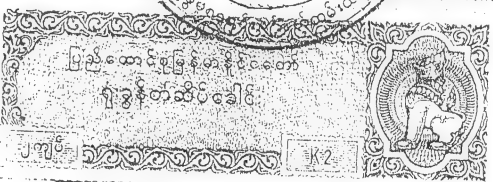 ပြည်ထောင်စုမြန်မာနိုင်ငံတော်
ရုံးခွန်တံဆိပ်ခေါင်း
၂ကျပ်
K-2